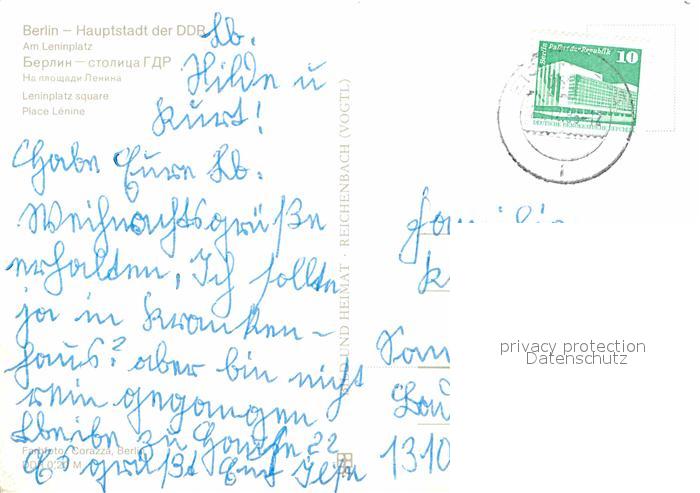 Berlin – Hauptstadt der DDR
Am Leninplatz
Берлин — столица ГДР
На площади Ленина
Leninplatz square
Place Lénine
Lb.
Hilde u
Kurt!
Habe Eure Lb.
Weihnachtsgrüße
erhalten, Ich sollte
ja in Kranken-
haus? aber bin nicht
rein gegangen
bleibe zu Hause ??
Es grüßt Euch Ilse
Farbfoto: Corazza, Berlin
BILD UND HEIMAT · REICHENBACH (VOGTL)
Berlin Palast der Republik
10
DEUTSCHE DEMOKRATISCHE REPUBLIK
Familie
K
1310
privacy protection
Datenschutz